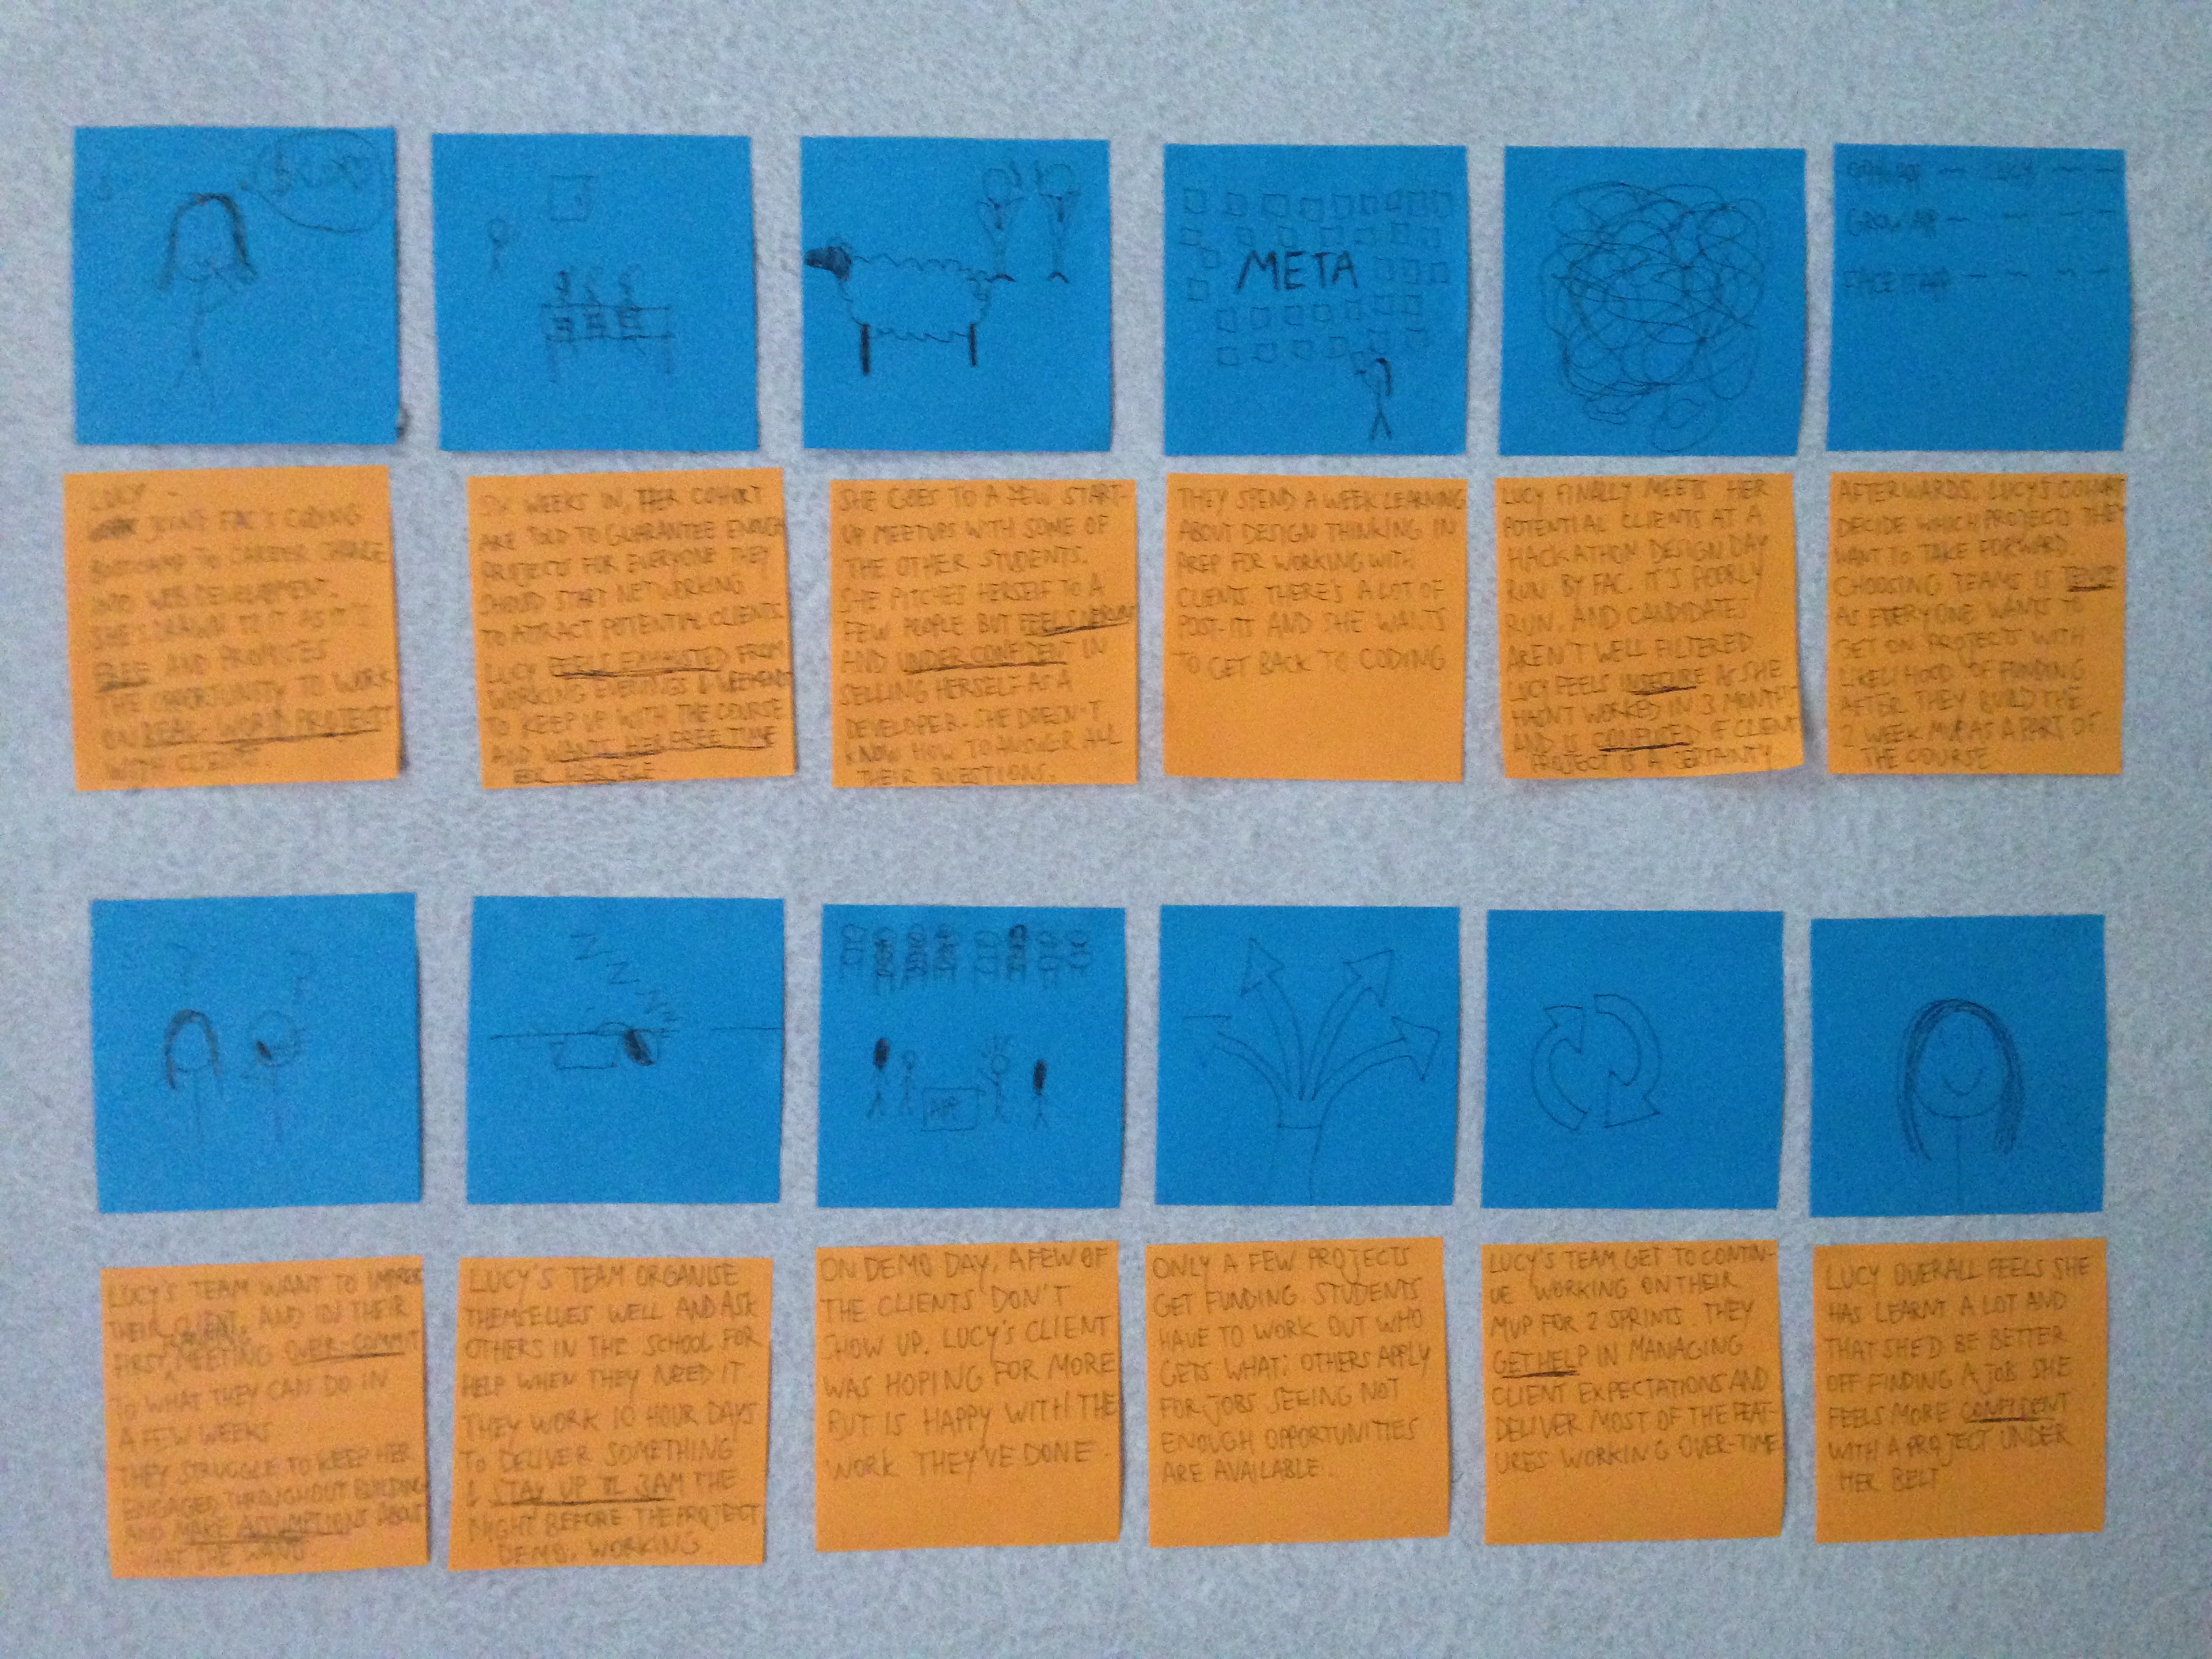 META
LUCY
GROW APP
FACE
LUCY -
JOINS FAC'S CODING
BOOTCAMP TO CAREER CHANGE
INTO WEB DEVELOPMENT.
SHE'S DRAWN TO IT AS IT'S
FREE AND PROMISES
THE OPPORTUNITY TO WORK
ON REAL WORLD PROJECTS
WITH CLIENTS.
SIX WEEKS IN, HER COHORT
ARE TOLD TO GUARANTEE ENOUGH
PROJECTS FOR EVERYONE THEY
SHOULD START NETWORKING
TO ATTRACT POTENTIAL CLIENTS.
LUCY FEELS EXHAUSTED FROM
WORKING EVENINGS & WEEKENDS
TO KEEP UP WITH THE COURSE
AND WANTS HER FREE TIME
FOR HERSELF
SHE GOES TO A FEW START-
UP MEETUPS WITH SOME OF
THE OTHER STUDENTS.
SHE PITCHES HERSELF TO A
FEW PEOPLE BUT FEELS
AND UNDER CONFIDENT IN
SELLING HERSELF AS A
DEVELOPER - SHE DOESN'T
KNOW HOW TO ANSWER ALL
THEIR QUESTIONS.
THEY SPEND A WEEK LEARNING
ABOUT DESIGN THINKING IN
PREP FOR WORKING WITH
CLIENTS. THERE'S A LOT OF
POST-ITS AND SHE WANTS
TO GET BACK TO CODING
LUCY FINALLY MEETS HER
POTENTIAL CLIENTS AT A
HACKATHON DESIGN DAY
RUN BY FAC. IT'S POORLY
RUN, AND CANDIDATES
AREN'T WELL FILTERED
LUCY FEELS INSECURE AS SHE
HASN'T WORKED IN 3 MONTHS
AND IS CONFUSED IF CLIENT
PROJECT IS A CERTAINTY
AFTERWARDS, LUCY'S COHORT
DECIDE WHICH PROJECTS THEY
WANT TO TAKE FORWARD.
CHOOSING TEAMS IS TENSE
AS EVERYONE WANTS TO
GET ON PROJECTS WITH
LIKELIHOOD OF FUNDING
AFTER THEY BUILD THE
2 WEEK MVP AS A PART OF
THE COURSE
? ?
Z Z Z Z Z Z
APP
LUCY'S TEAM WANT TO IMPRESS
THEIR CLIENT, AND IN THEIR
FIRST MEETING OVER-COMMIT
TO WHAT THEY CAN DO IN
A FEW WEEKS
THEY STRUGGLE TO KEEP HER
ENGAGED THROUGHOUT BUILDING
AND MAKE ASSUMPTIONS ABOUT
WHAT SHE WANTS.
LUCY'S TEAM ORGANISE
THEMSELVES WELL AND ASK
OTHERS IN THE SCHOOL FOR
HELP WHEN THEY NEED IT.
THEY WORK 10 HOUR DAYS
TO DELIVER SOMETHING
& STAY UP TIL 3AM THE
NIGHT BEFORE THE PROJECT
DEMO, WORKING.
ON DEMO DAY, A FEW OF
THE CLIENTS DON'T
SHOW UP. LUCY'S CLIENT
WAS HOPING FOR MORE
BUT IS HAPPY WITH THE
WORK THEY'VE DONE.
ONLY A FEW PROJECTS
GET FUNDING. STUDENTS
HAVE TO WORK OUT WHO
GETS WHAT; OTHERS APPLY
FOR JOBS SEEING NOT
ENOUGH OPPORTUNITIES
ARE AVAILABLE.
LUCY'S TEAM GET TO CONTIN-
UE WORKING ON THEIR
MVP FOR 2 SPRINTS. THEY
GET HELP IN MANAGING
CLIENT EXPECTATIONS AND
DELIVER MOST OF THE FEAT-
URES WORKING OVER-TIME
LUCY OVERALL FEELS SHE
HAS LEARNT A LOT AND
THAT SHE'D BE BETTER
OFF FINDING A JOB SHE
FEELS MORE CONFIDENT
WITH A PROJECT UNDER
HER BELT